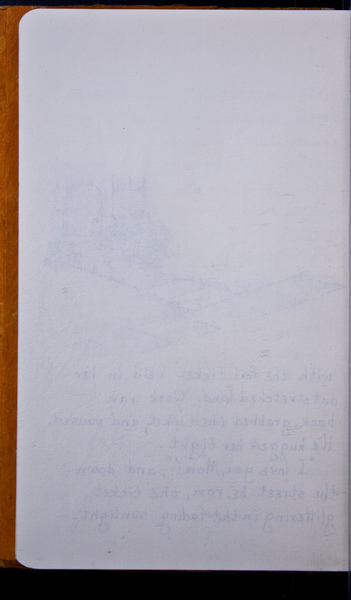 with the foil ticket held in her
outstretched hand. Uick ran
back, grabbed the ticket, and paused.
He hugged her tight.
"I love you, Mom!", and down
the street he ran, the ticket
glittering in the fading sunlight.